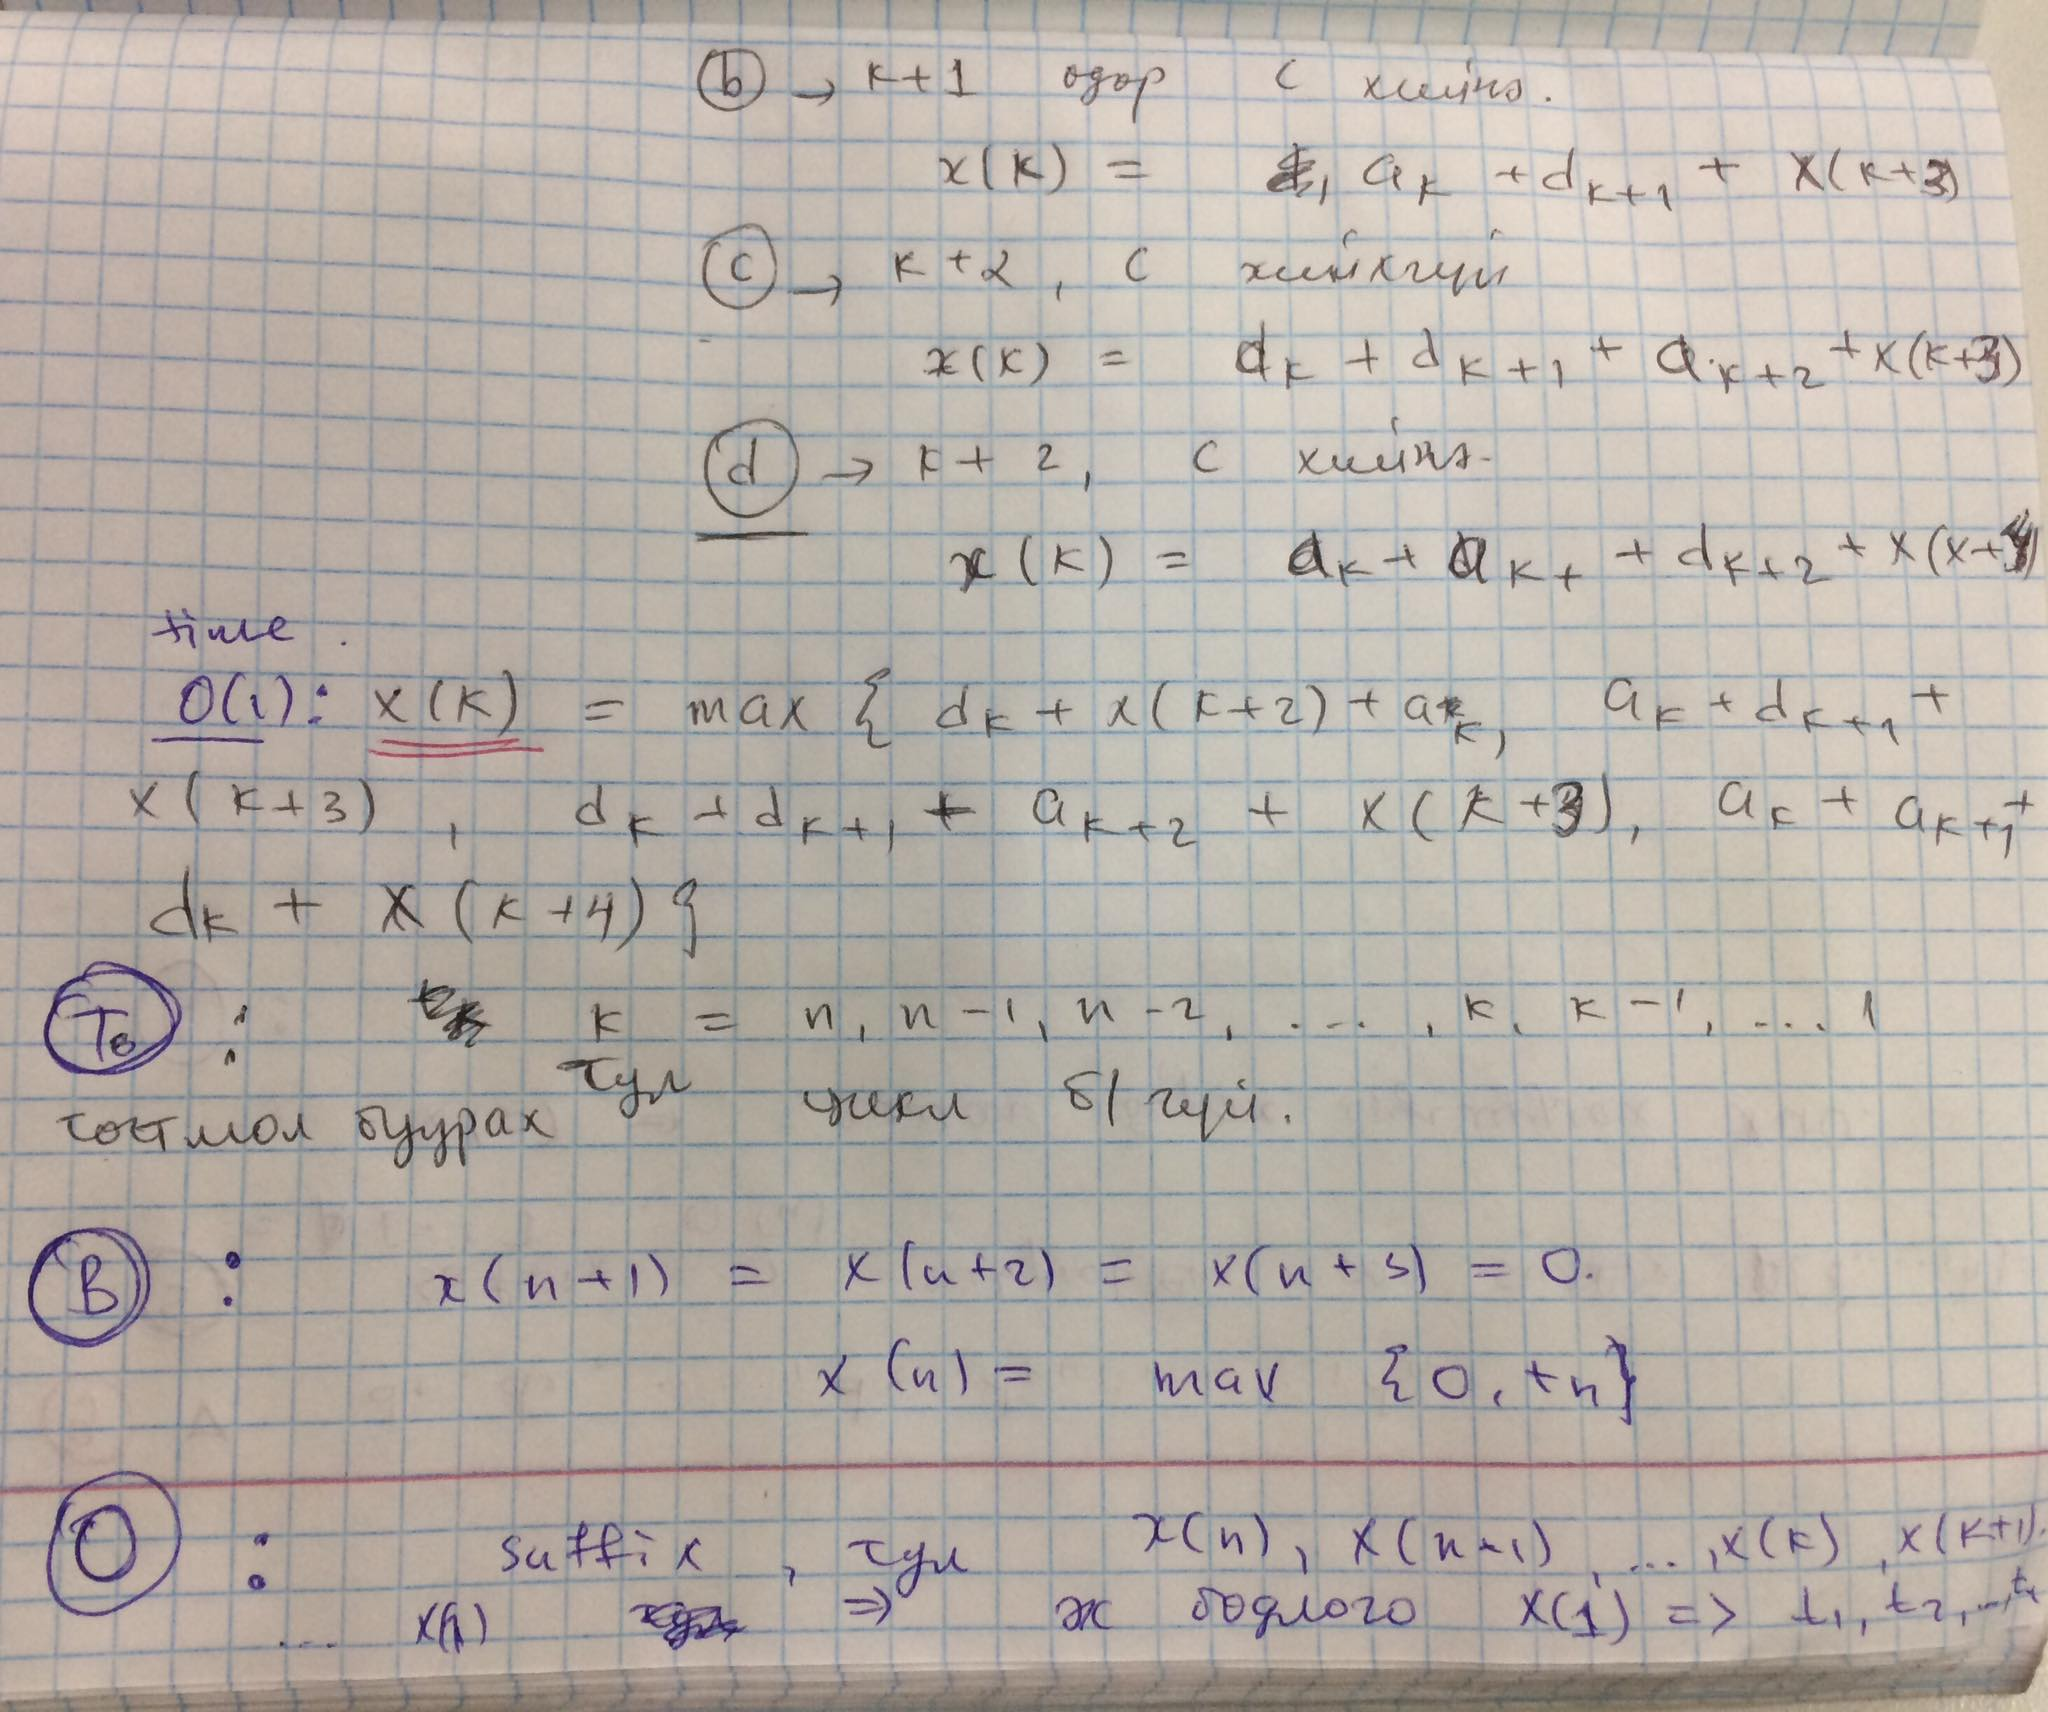 b → k+1 өдөр C хийнэ.
x(k) = a_k + d_{k+1} + x(k+3)
c → k+2, C хийхгүй
x(k) = d_k + d_{k+1} + a_{k+2} + x(k+3)
d → k+2, C хийнэ.
x(k) = a_k + a_{k+} + d_{k+2} + x(x+4)
time.
O(1): x(k) = max { d_k + x(k+2) + a_k, a_k + d_{k+1} +
x(k+3), d_k + d_{k+1} + a_{k+2} + x(k+3), a_k + a_{k+1} +
d_k + x(k+4)}
To: k = n, n-1, n-2, ..., k, k-1, ... 1
тогтмол буурах тул цикл б/гүй.
B: x(n+1) = x(n+2) = x(n+3) = 0.
x(n) = max {0, t_n}
O: suffix, тул x(n), x(n-1), ..., x(k), x(k+1).
... x(1) ⇒ ж бодлого x(1) => t_1, t_2, ...,